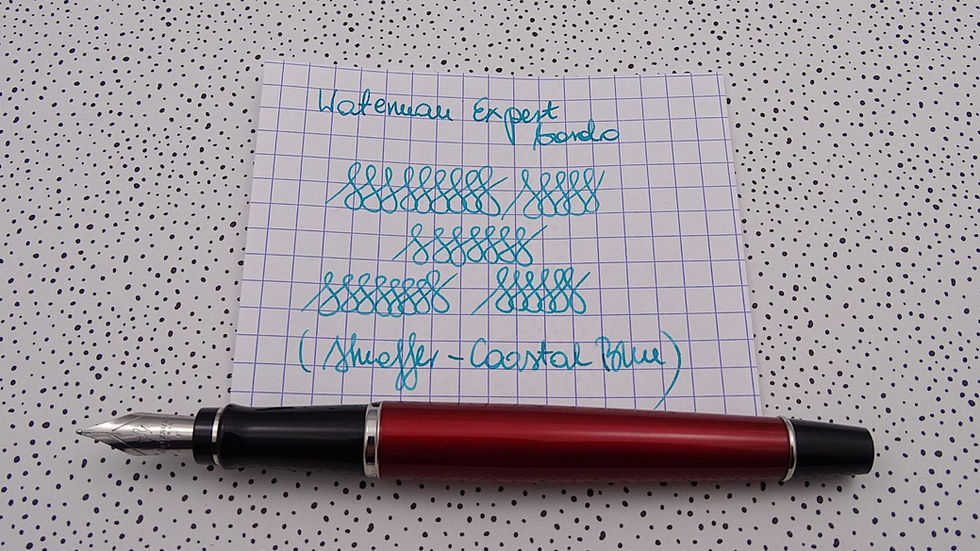 Waterman Expert
bordo
(Sheaffer - Coastal Blue)